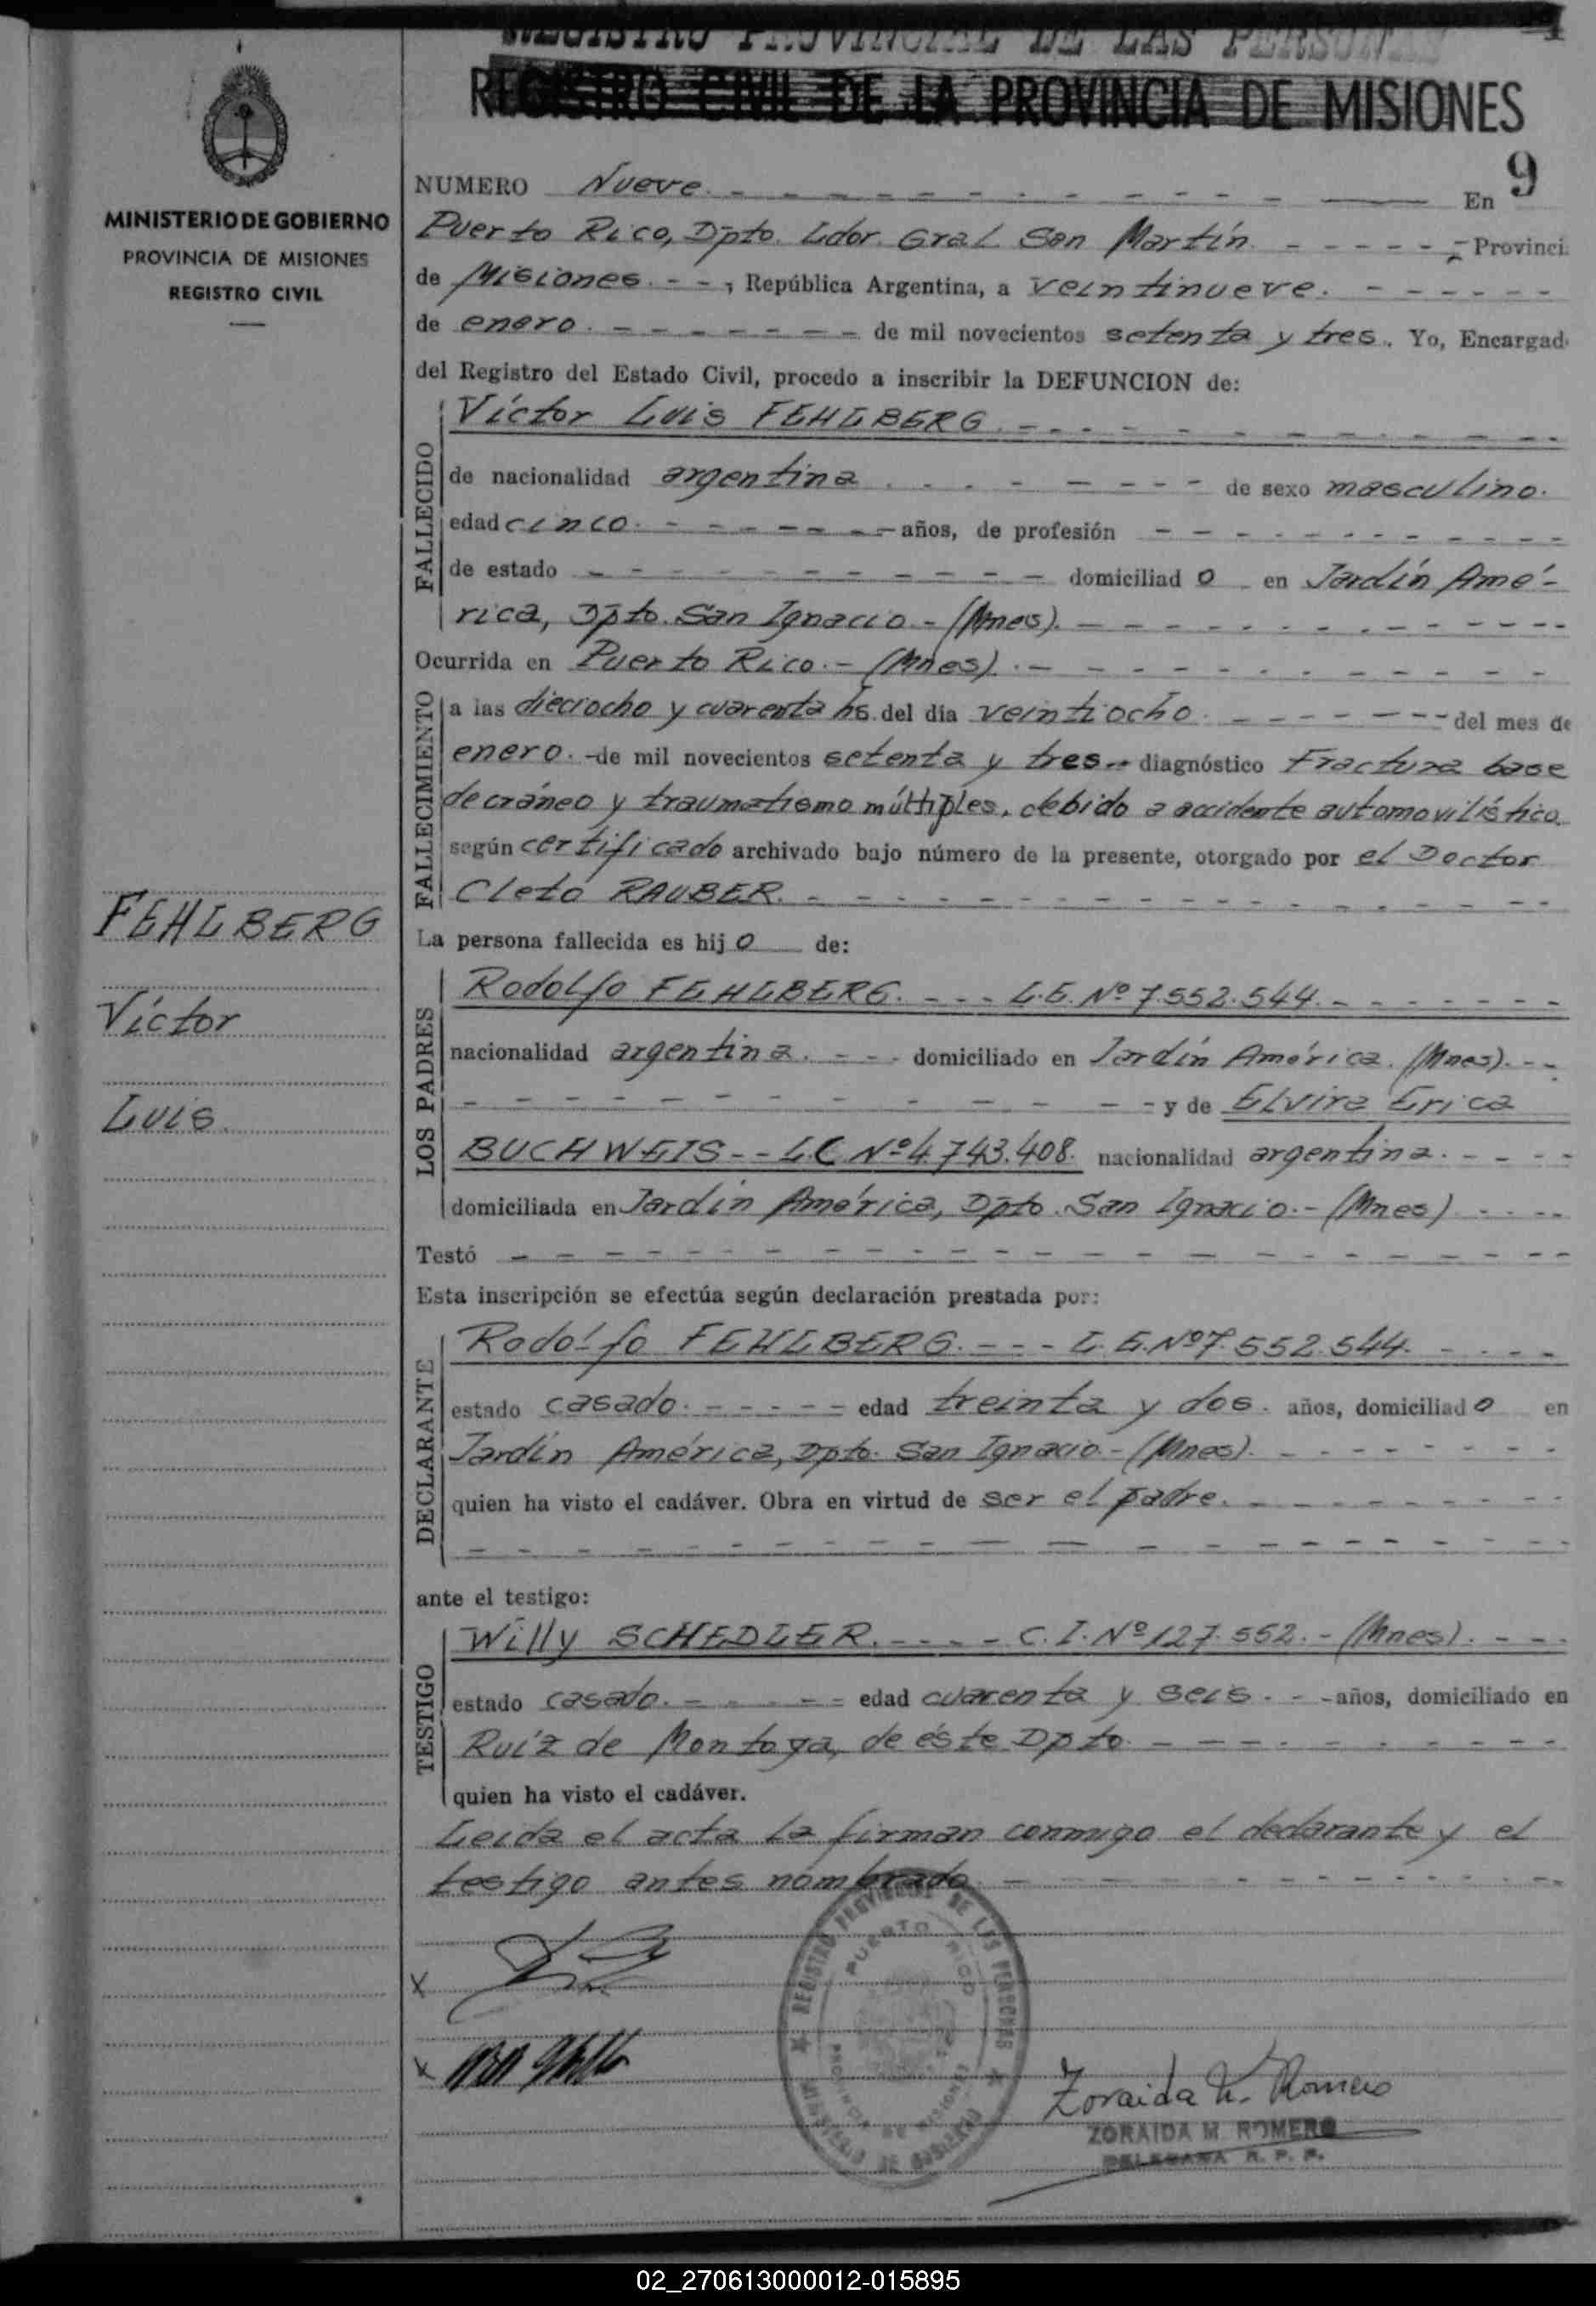 REGISTRO PROVINCIAL DE LAS PERSONAS
REGISTRO CIVIL DE LA PROVINCIA DE MISIONES
MINISTERIO DE GOBIERNO
PROVINCIA DE MISIONES
REGISTRO CIVIL
9
NUMERO Nueve. En
Puerto Rico, Dpto. Ldor. Gral San Martín. Provinci
de Misiones. - -, República Argentina, a veintinueve.
de enero. de mil novecientos setenta y tres. Yo, Encargad
del Registro del Estado Civil, procedo a inscribir la DEFUNCION de:
FALLECIDO
Víctor Luis FEHLBERG.
de nacionalidad argentina de sexo masculino.
edad cinco. años, de profesión
de estado domiciliad o en Jardín Amé-
rica, Dpto. San Ignacio - (Mnes).
Ocurrida en Puerto Rico.- (Mnes).
FALLECIMIENTO
a las dieciocho y cuarenta hs. del día veintiocho. del mes de
enero. - de mil novecientos setenta y tres.- diagnóstico Fractura base
de cráneo y traumatismo múltiples, debido a accidente automovilístico.
según certificado archivado bajo número de la presente, otorgado por el Doctor
Cleto RAUBER.
FEHLBERG
Víctor
Luis.
La persona fallecida es hij o de:
LOS PADRES
Rodolfo FEHLBERG. - - - L.E. Nº 7.552.544.
nacionalidad argentina. - - - domiciliado en Jardín América. (Mnes). - -
y de Elvira Erica
BUCHWEIS - - L.C. Nº 4.743.408. nacionalidad argentina.
domiciliada en Jardín América, Dpto. San Ignacio.- (Mnes)
Testó
Esta inscripción se efectúa según declaración prestada por:
DECLARANTE
Rodolfo FEHLBERG. - - - L.E. Nº 7.552.544.
estado casado. edad treinta y dos. años, domiciliad o en
Jardín América, Dpto. San Ignacio - (Mnes).
quien ha visto el cadáver. Obra en virtud de ser el padre.
ante el testigo:
TESTIGO
Willy SCHEDLER. - - - - C.I. Nº 127.552. - (Mnes).
estado casado. edad cuarenta y seis. - - años, domiciliado en
Ruíz de Montoya, de éste Dpto.
quien ha visto el cadáver.
Leída el acta la firman conmigo el declarante y el
testigo antes nombrado
REGISTRO PROVINCIAL DE LAS PERSONAS
PUERTO RICO
PROVINCIA DE MISIONES
MINISTERIO DE GOBIERNO
x
x
Zoraida M. Romero
ZORAIDA M. ROMERO
DELEGADA R. P. P.
02_270613000012-015895